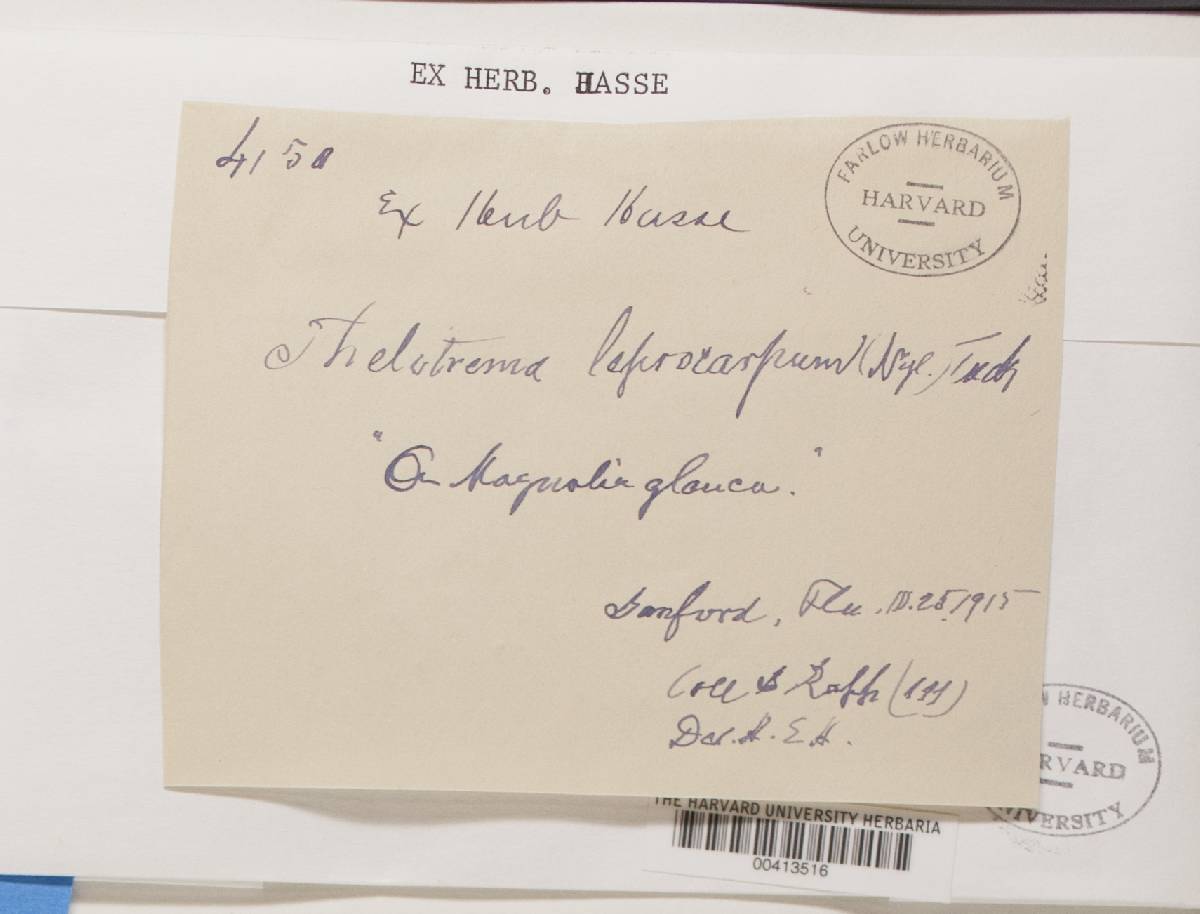 EX HERB. HASSE
4150
FARLOW HERBARIUM
HARVARD
UNIVERSITY
Ex Herb Hasse
Thelotrema leprocarpum (Nyl.) Tuck
"On Magnolia glauca."
Sanford, Fla. 25, 1915
Coll S Rapp
Det. H. E. H.
HERBARIUM
THE HARVARD UNIVERSITY HERBARIA
00413516